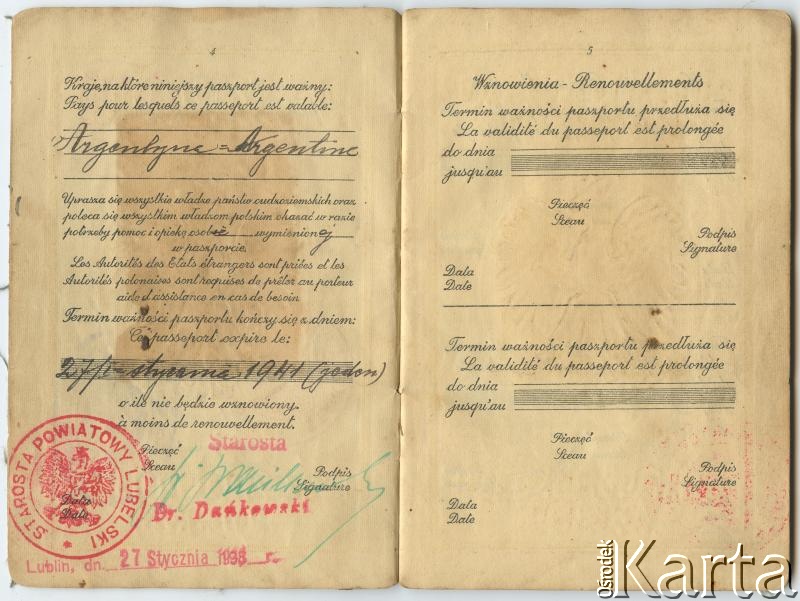 4
Kraje, na które niniejszy paszport jest ważny:
Pays pour lesquels ce passeport est valable:
Argentyna = Argentine
Uprasza się wszystkie władze państw cudzoziemskich oraz
poleca się wszystkim władzom polskim okazać w razie
potrzeby pomoc i opiekę osobie wymienionej
w paszporcie.
Les Autorités des Etats étrangers sont priées et les
Autorités polonaises sont requises de prêter au porteur
aide et d'assistance en cas de besoin
Termin ważności paszportu kończy się z dniem:
Ce passeport expire le:
27/I = stycznia 1941 (jeden)
o ile nie będzie wznowiony.
à moins de renouvellement.
Pieczęć
Sceau
Starosta
Podpis
Signature
Dr. Dańkowski
STAROSTA POWIATOWY LUBELSKI
Data
Date
Lublin, dn. 27 Stycznia 1938 r.
5
Wznowienia - Renouvellements
Termin ważności paszportu przedłuża się
La validité du passeport est prolongée
do dnia
jusqu'au
Pieczęć
Sceau
Podpis
Signature
Data
Date
Termin ważności paszportu przedłuża się
La validité du passeport est prolongée
do dnia
jusqu'au
Pieczęć
Sceau
Podpis
Signature
Data
Date
ośrodek Karta